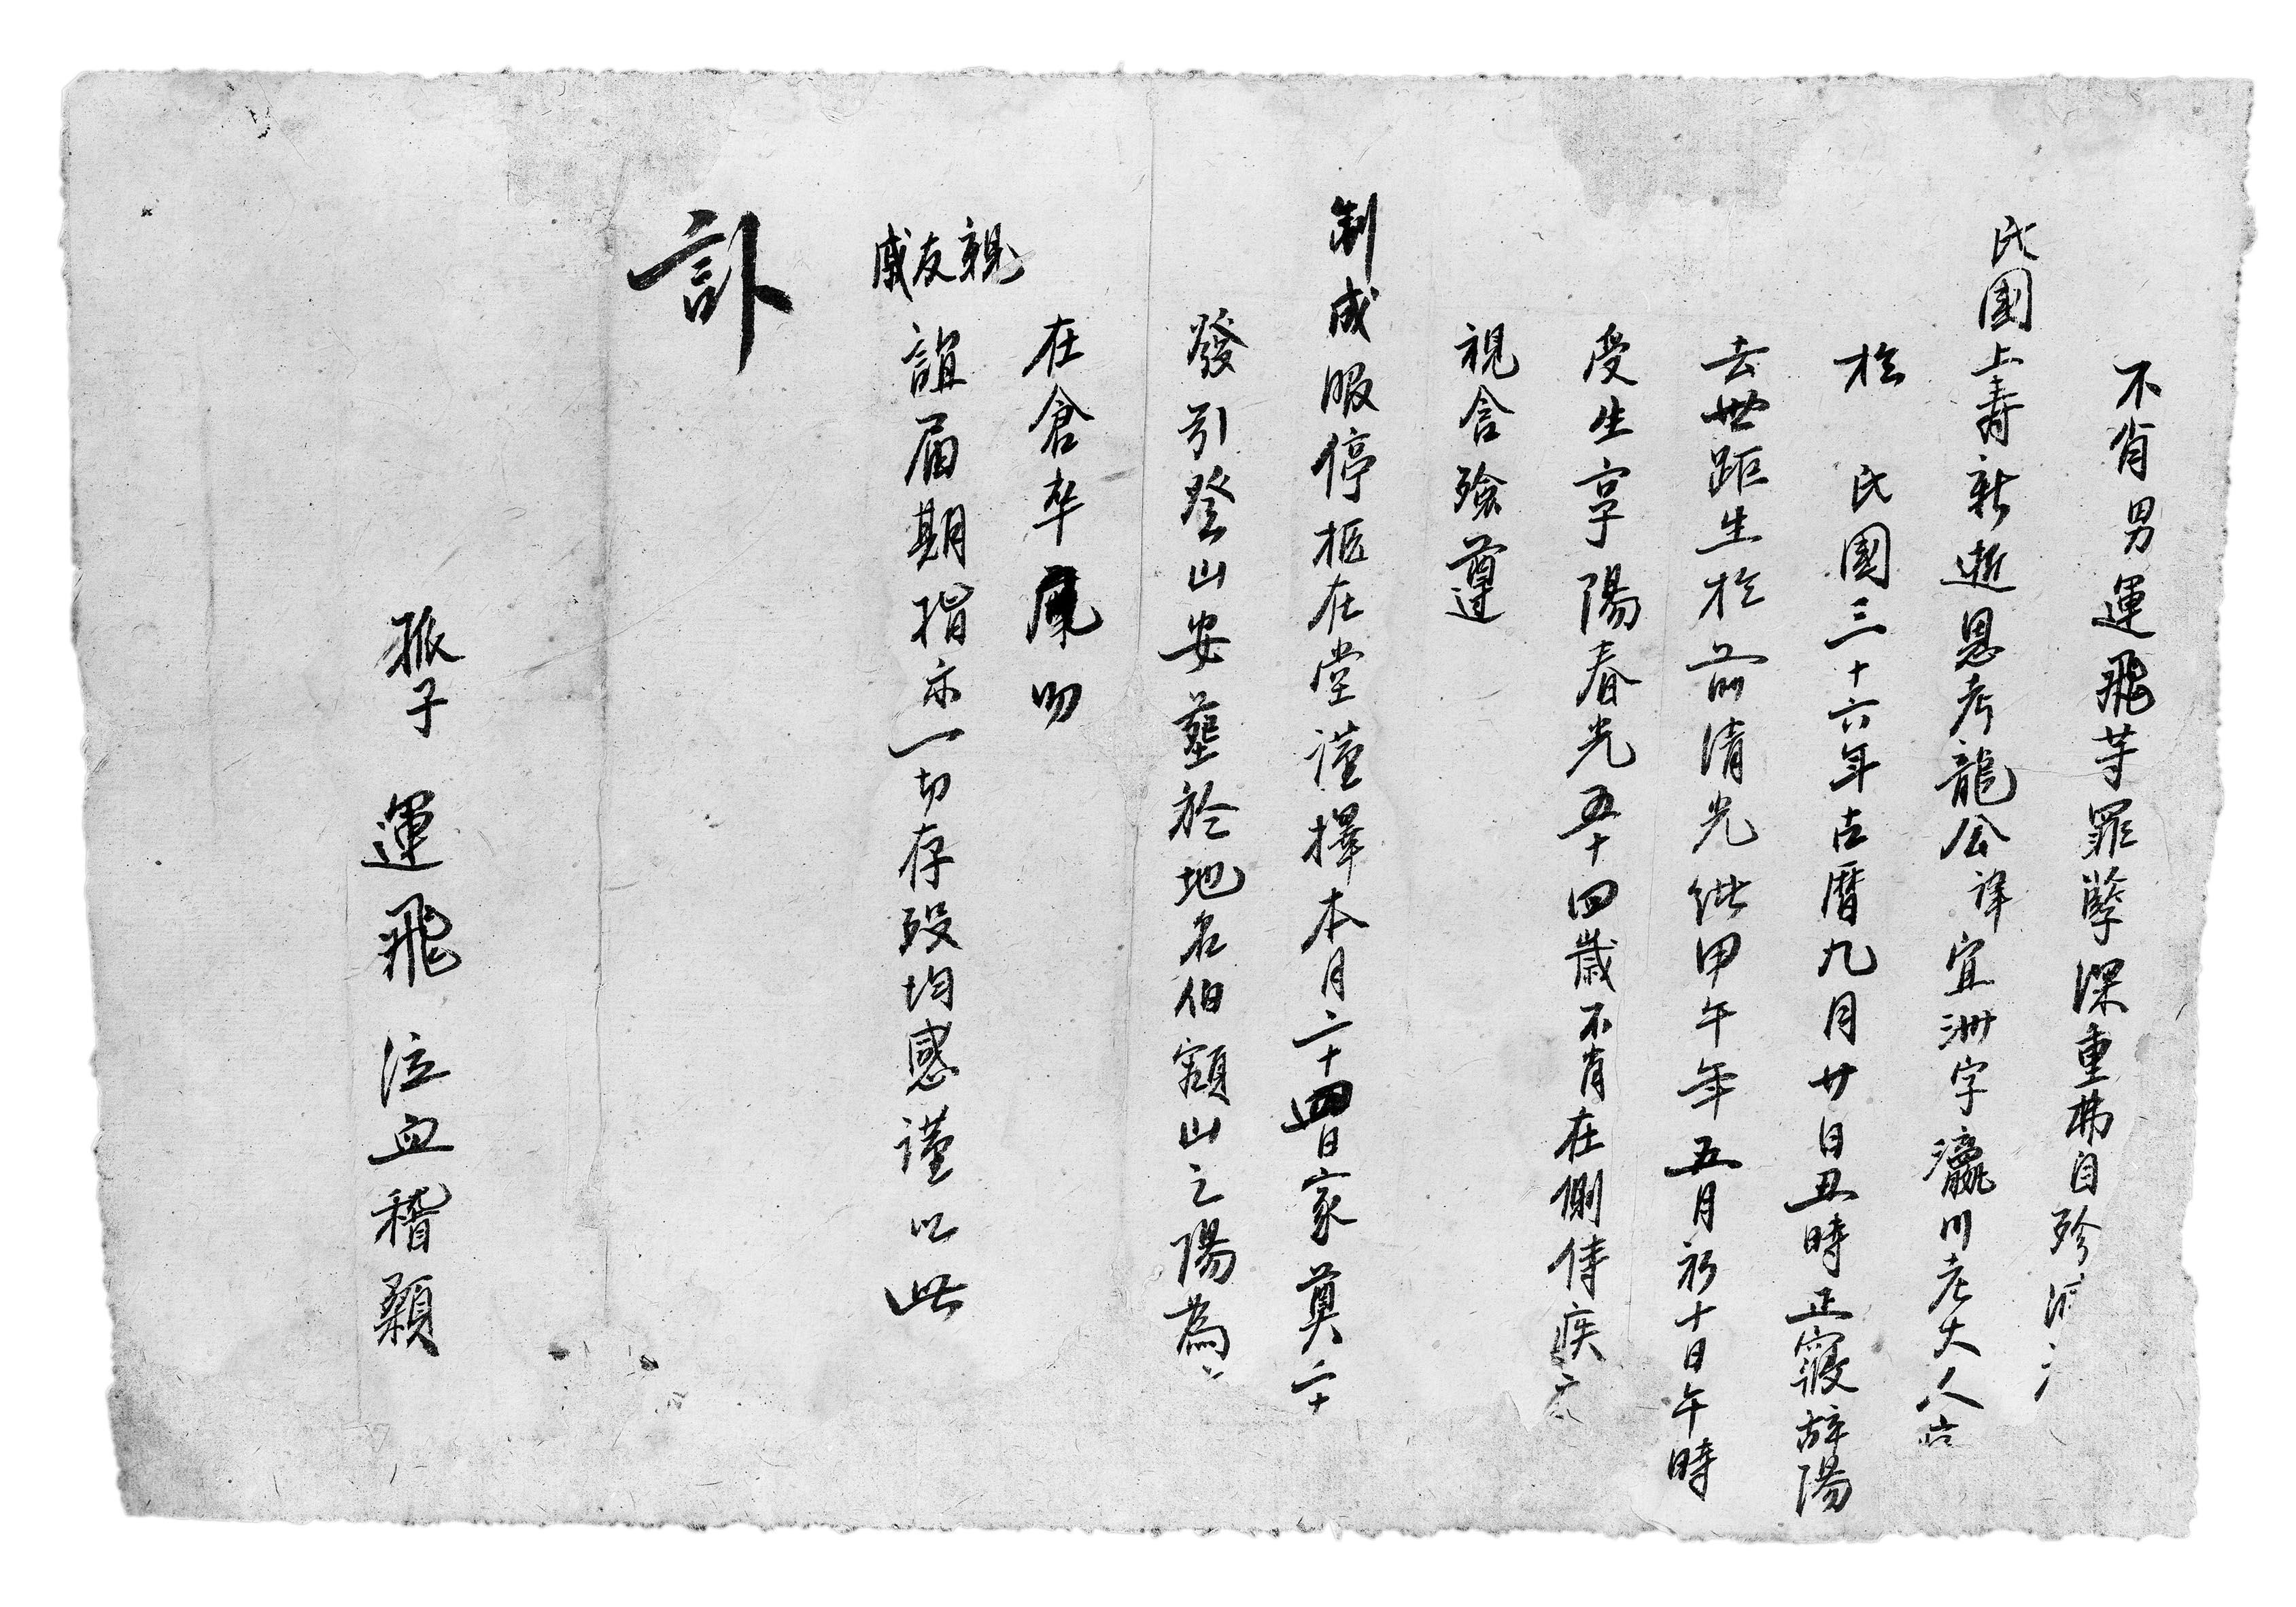 不肖男運飛等罪孽深重弗自殄滅
民國上壽新逝恩考龍公諱宜洲字瀛川老大人
於 民國三十六年古曆九月廿日丑時正寢辭陽
去世距生於前清光緒甲午年五月初十日午時
受生享陽春光五十四歲不肖在側侍疾
視含殮遵
制成服停柩在堂謹擇本月二十四日家奠二十
發引登山安塟於地名伯額山之陽為
在倉卒 叨
親友戚
誼届期指示一切存歿均感謹以此
訃
孤子 運飛 泣血稽顙